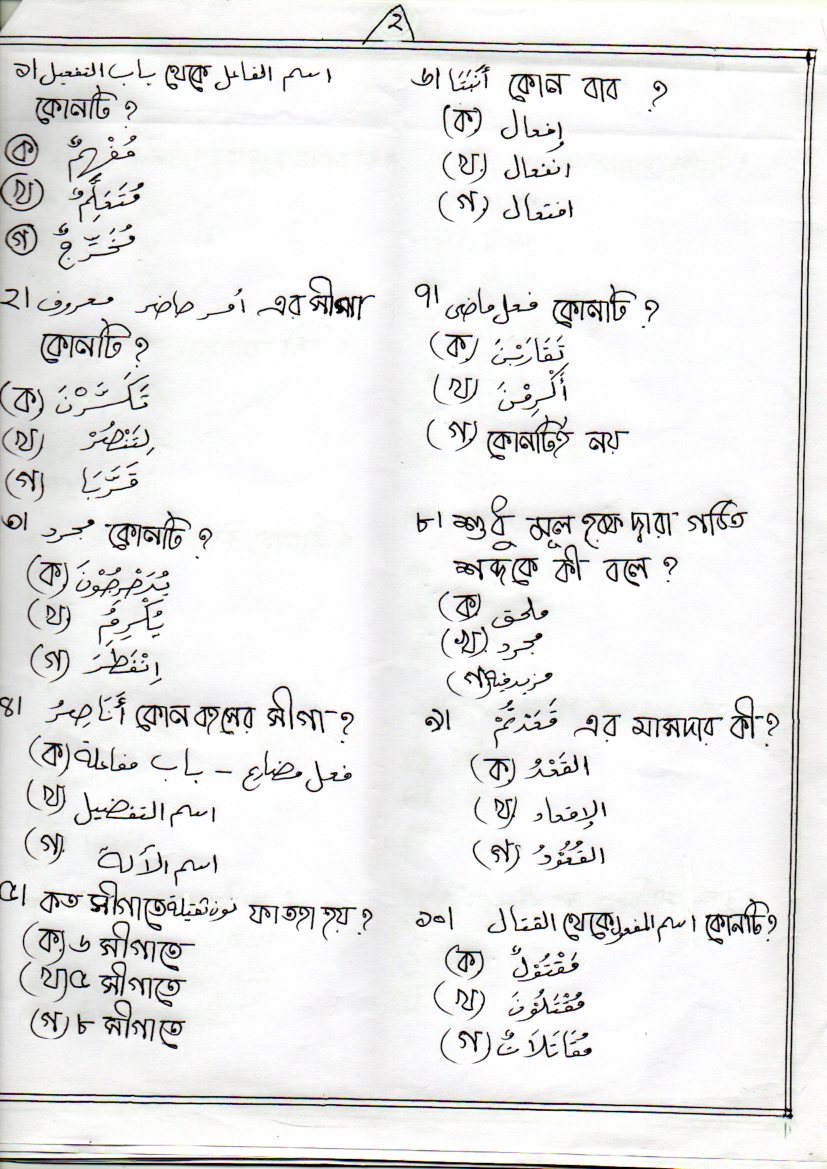 ২
১। اسم الفاعل থেকে باب التفعيل
কোনটি ?
(ক) مُفْهِمٌ
(খ) مُتَعَلِّمٌ
(গ) مُخَرِّجٌ
২। أمر حاضر معروف এর সীগা
কোনটি ?
(ক) تَكَسَّرْنَ
(খ) لِتَنْصُرْ
(গ) قَرَّبَا
৩। مجرد কোনটি ?
(ক) يُدَحْرِجُوْنَ
(খ) يُكْرِمُ
(গ) اِنْفَطَرَ
৪। أُنَاصِرُ কোন বহসের সীগা ?
(ক) فعل مضارع – باب مفاعلة
(খ) اسم التفضيل
(গ) اسم الألة
৫। কত সীগাতে نون ثقيلة ফাতহা হয় ?
(ক) ৬ সীগাতে
(খ) ৫ সীগাতে
(গ) ৮ সীগাতে
৬। أَنْبَتَا কোন বাব ?
(ক) إفعال
(খ) انفعال
(গ) افتعال
৭। فعل ماضى কোনটি ?
(ক) تَقَارَبْنَ
(খ) أَكْرِمْنَ
(গ) কোনটিই নয়
৮। শুধু মূল হরফ দ্বারা গঠিত
শব্দকে কী বলে ?
(ক) ملحق
(খ) مجرد
(গ) مزيد فيه
৯। قَعَدْتُمْ এর মাসদার কী ?
(ক) القَعْدُ
(খ) الإقعاد
(গ) القُعُوْدُ
১০। القتال থেকে اسم المفعول কোনটি ?
(ক) مَقْتُوْلٌ
(খ) مُقْتَلُوْنَ
(গ) مُقَاتَلَاتٌ